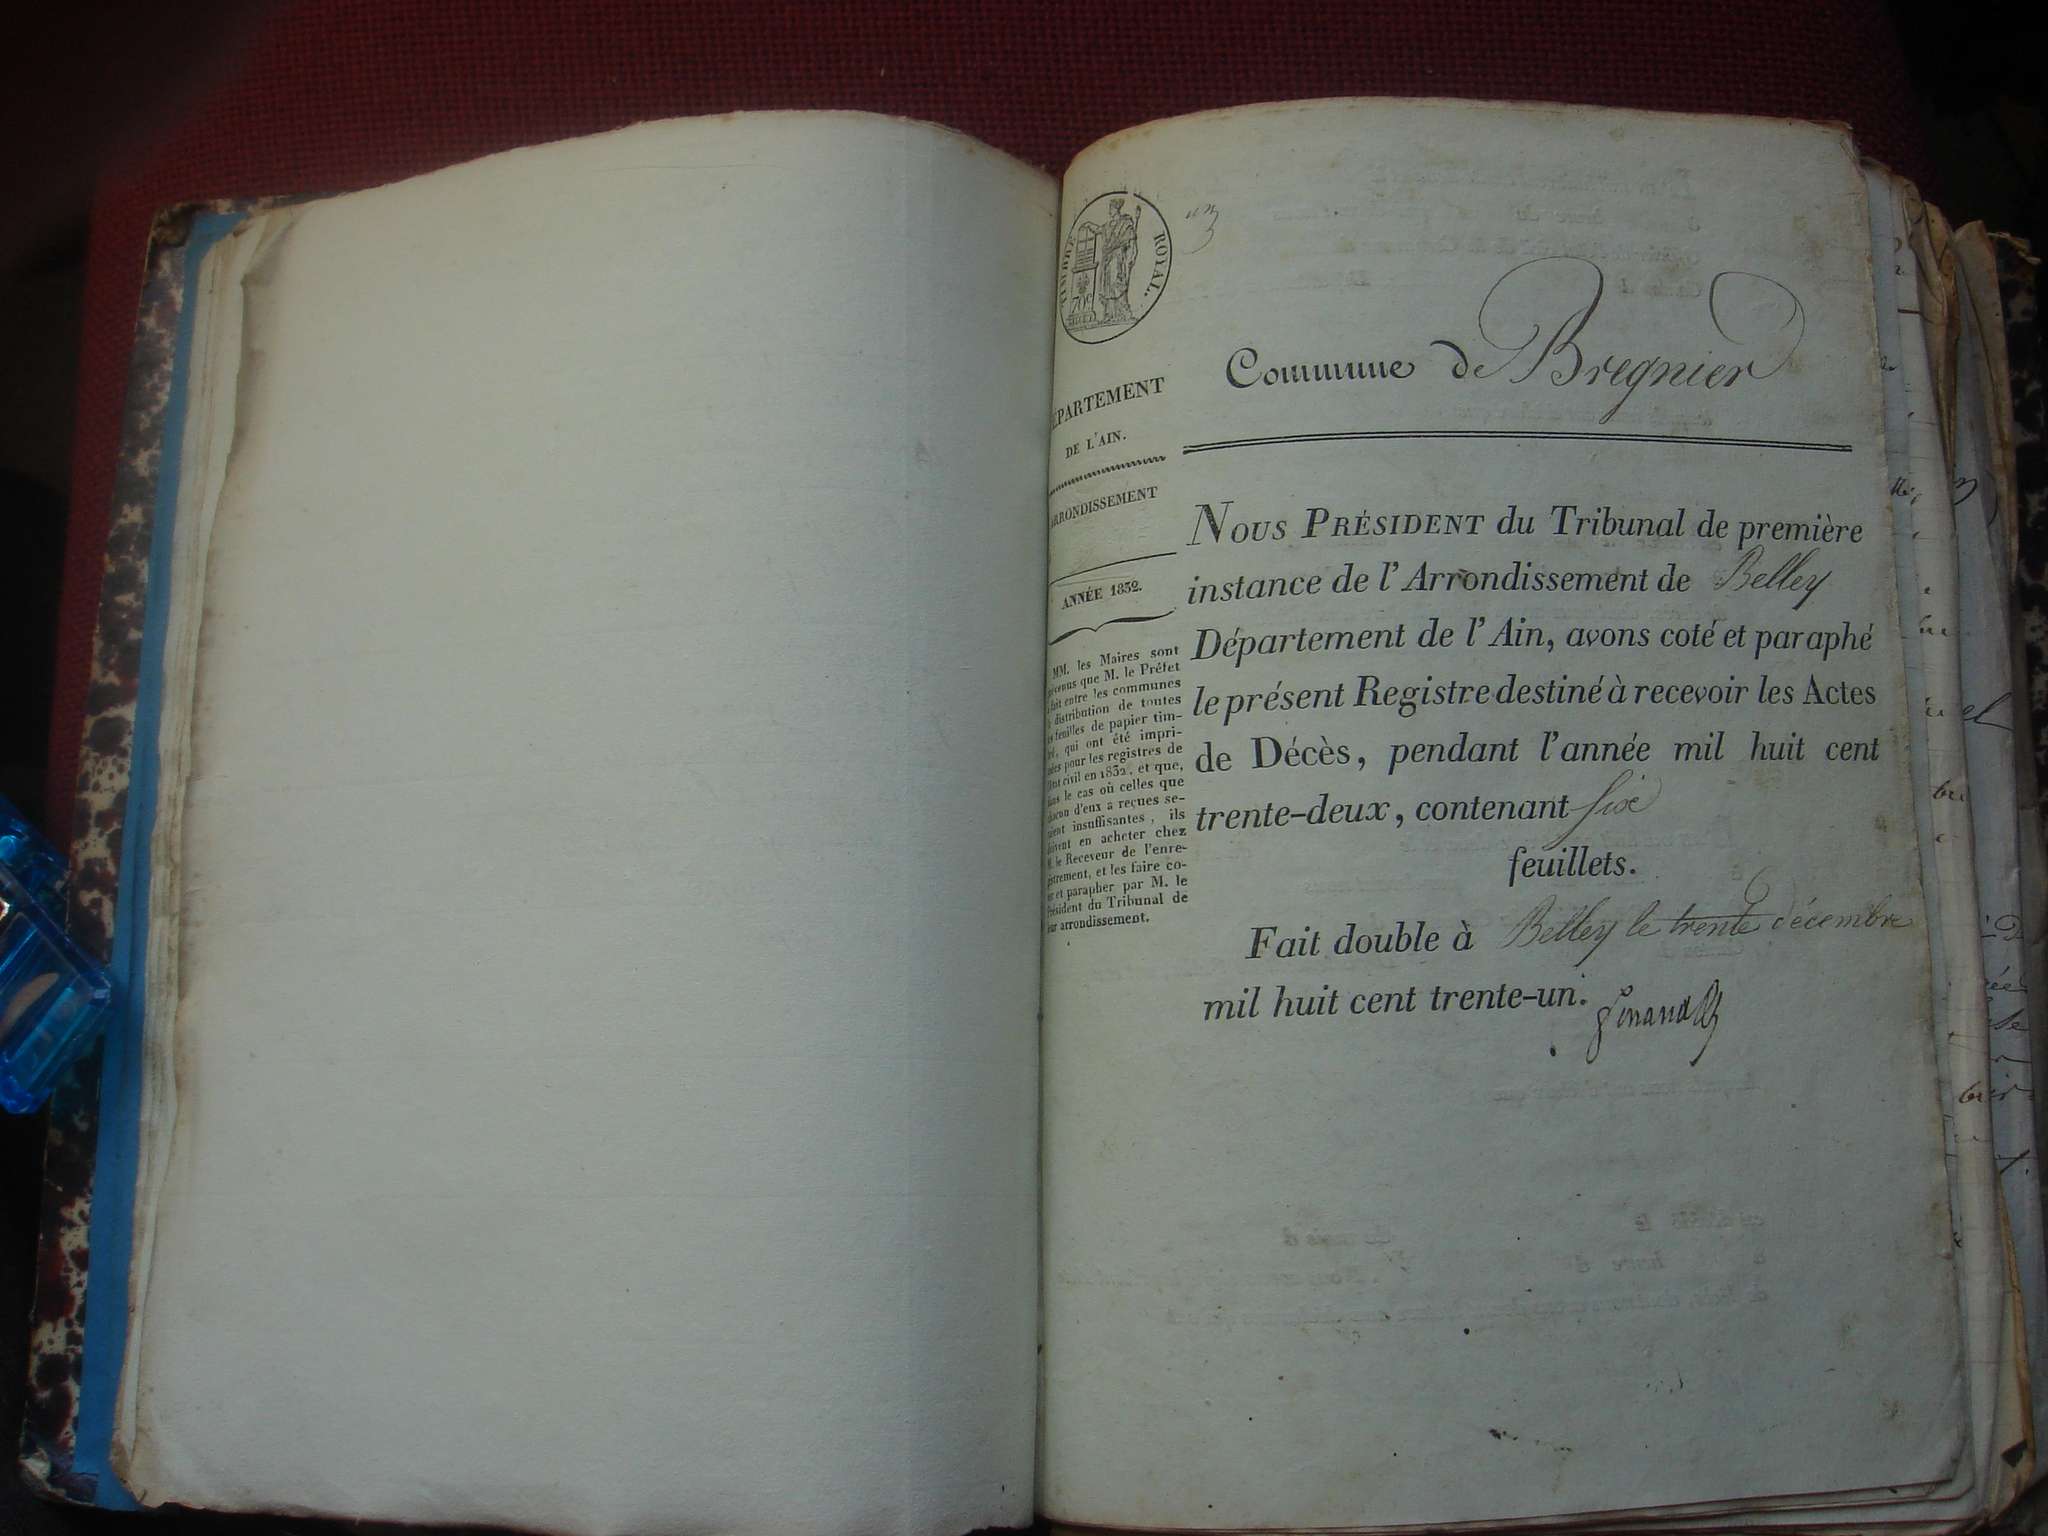 TIMBRE ROYAL.
70c
un
DÉPARTEMENT
DE L'AIN.
ARRONDISSEMENT
ANNÉE 1832.
MM. les Maires sont
prévenus que M. le Préfet
a fait entre les communes
la distribution de toutes
les feuilles de papier tim-
bré, qui ont été impri-
mées pour les registres de
l'état civil en 1832, et que,
dans le cas où celles que
chacun d'eux a reçues se-
raient insuffisantes, ils
doivent en acheter chez
M. le Receveur de l'enre-
gistrement, et les faire co-
ter et parapher par M. le
Président du Tribunal de
leur arrondissement.
Commune de Bregnier
NOUS PRÉSIDENT du Tribunal de première
instance de l'Arrondissement de Belley
Département de l'Ain, avons coté et paraphé
le présent Registre destiné à recevoir les Actes
de Décès, pendant l'année mil huit cent
trente-deux, contenant six
feuillets.
Fait double à Belley le trente décembre
mil huit cent trente-un.